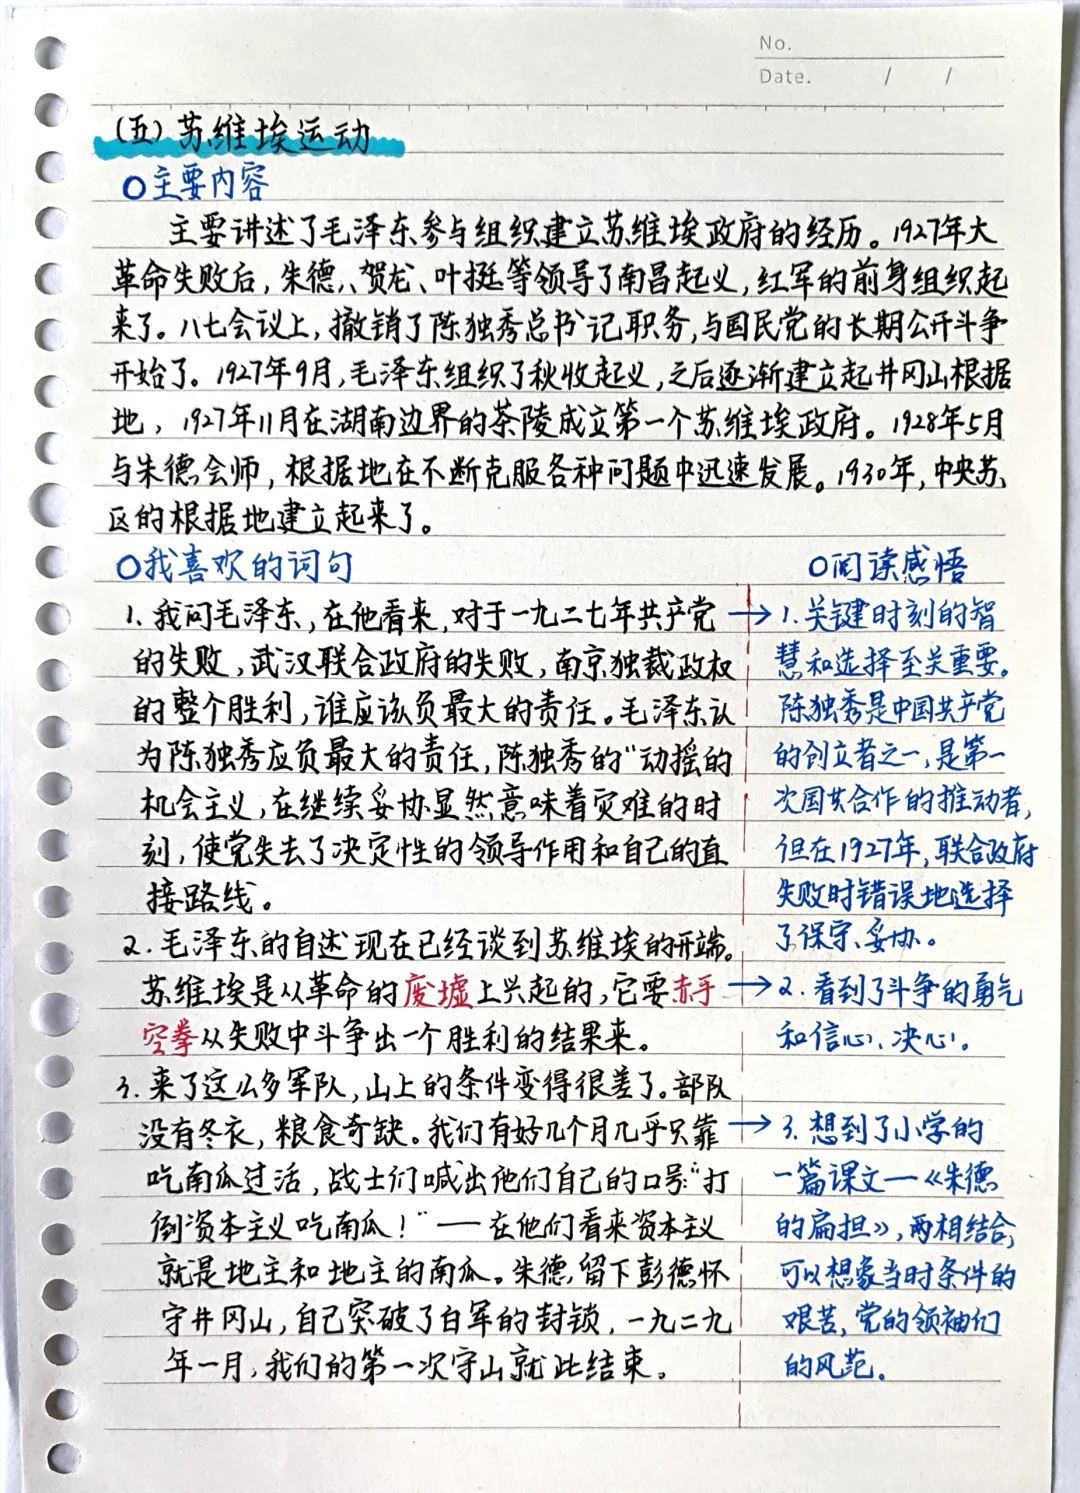 No.
Date. / /
(五)苏维埃运动
○主要内容
主要讲述了毛泽东参与组织建立苏维埃政府的经历。1927年大
革命失败后,朱德、贺龙、叶挺等领导了南昌起义,红军的前身组织起
来了。八七会议上,撤销了陈独秀总书记职务,与国民党的长期公开斗争
开始了。1927年9月,毛泽东组织了秋收起义,之后逐渐建立起井冈山根据
地,1927年11月在湖南边界的茶陵成立第一个苏维埃政府。1928年5月
与朱德会师,根据地在不断克服各种问题中迅速发展。1930年,中央苏
区的根据地建立起来了。
○我喜欢的词句
1.我问毛泽东,在他看来,对于一九二七年共产党
的失败,武汉联合政府的失败,南京独裁政权
的整个胜利,谁应该负最大的责任。毛泽东认
为陈独秀应负最大的责任,陈独秀的“动摇的
机会主义,在继续妥协显然意味着灾难的时
刻,使党失去了决定性的领导作用和自己的直
接路线。
2.毛泽东的自述现在已经谈到苏维埃的开端。
苏维埃是从革命的废墟上兴起的,它要赤手
空拳从失败中斗争出一个胜利的结果来。
3.来了这么多军队,山上的条件变得很差了。部队
没有冬衣,粮食奇缺。我们有好几个月几乎只靠
吃南瓜过活,战士们喊出他们自己的口号:“打
倒资本主义吃南瓜!”——在他们看来资本主义
就是地主和地主的南瓜。朱德,留下彭德怀
守井冈山,自己突破了白军的封锁,一九二九
年一月,我们的第一次守山就此结束。
○阅读感悟
→1.关键时刻的智
慧和选择至关重要。
陈独秀是中国共产党
的创立者之一,是第一
次国共合作的推动者,
但在1927年,联合政府
失败时错误地选择
了保守、妥协。
→2.看到了斗争的勇气
和信心、决心。
→3.想到了小学的
一篇课文—《朱德
的扁担》,两相结合,
可以想象当时条件的
艰苦,党的领袖们
的风范。